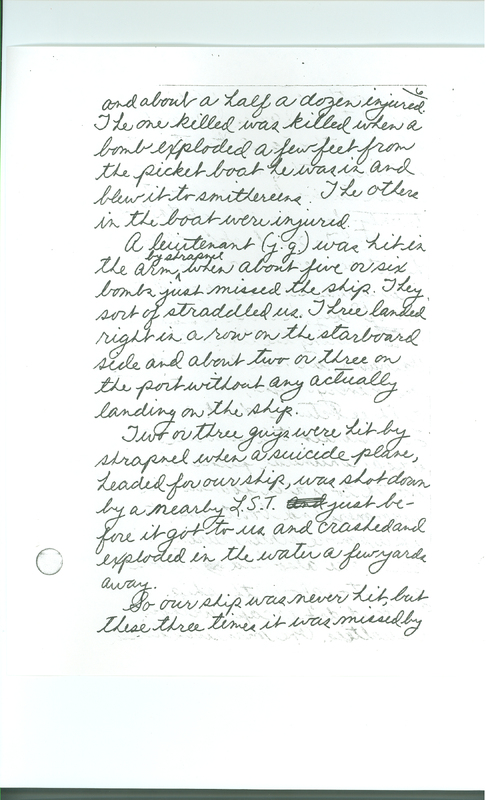 6
and about a half a dozen injured.
The one killed was killed when a
bomb exploded a few feet from
the picket boat he was in and
blew it to smithereens. The others
in the boat were injured.
A lieutenant (j.g.) was hit in
by strapnel
the arm, when about five or six
bombs just missed the ship. They
sort of straddled us. Three landed
right in a row on the starboard
side and about two or three on
the port without any actually
landing on the ship.
Two or three guys were hit by
strapnel when a suicide plane,
headed for our ship, was shot down
by a nearby L.S.T. and just be-
fore it got to us and crashed and
exploded in the water a few yards
away.
So our ship was never hit, but
these three times it was missed by